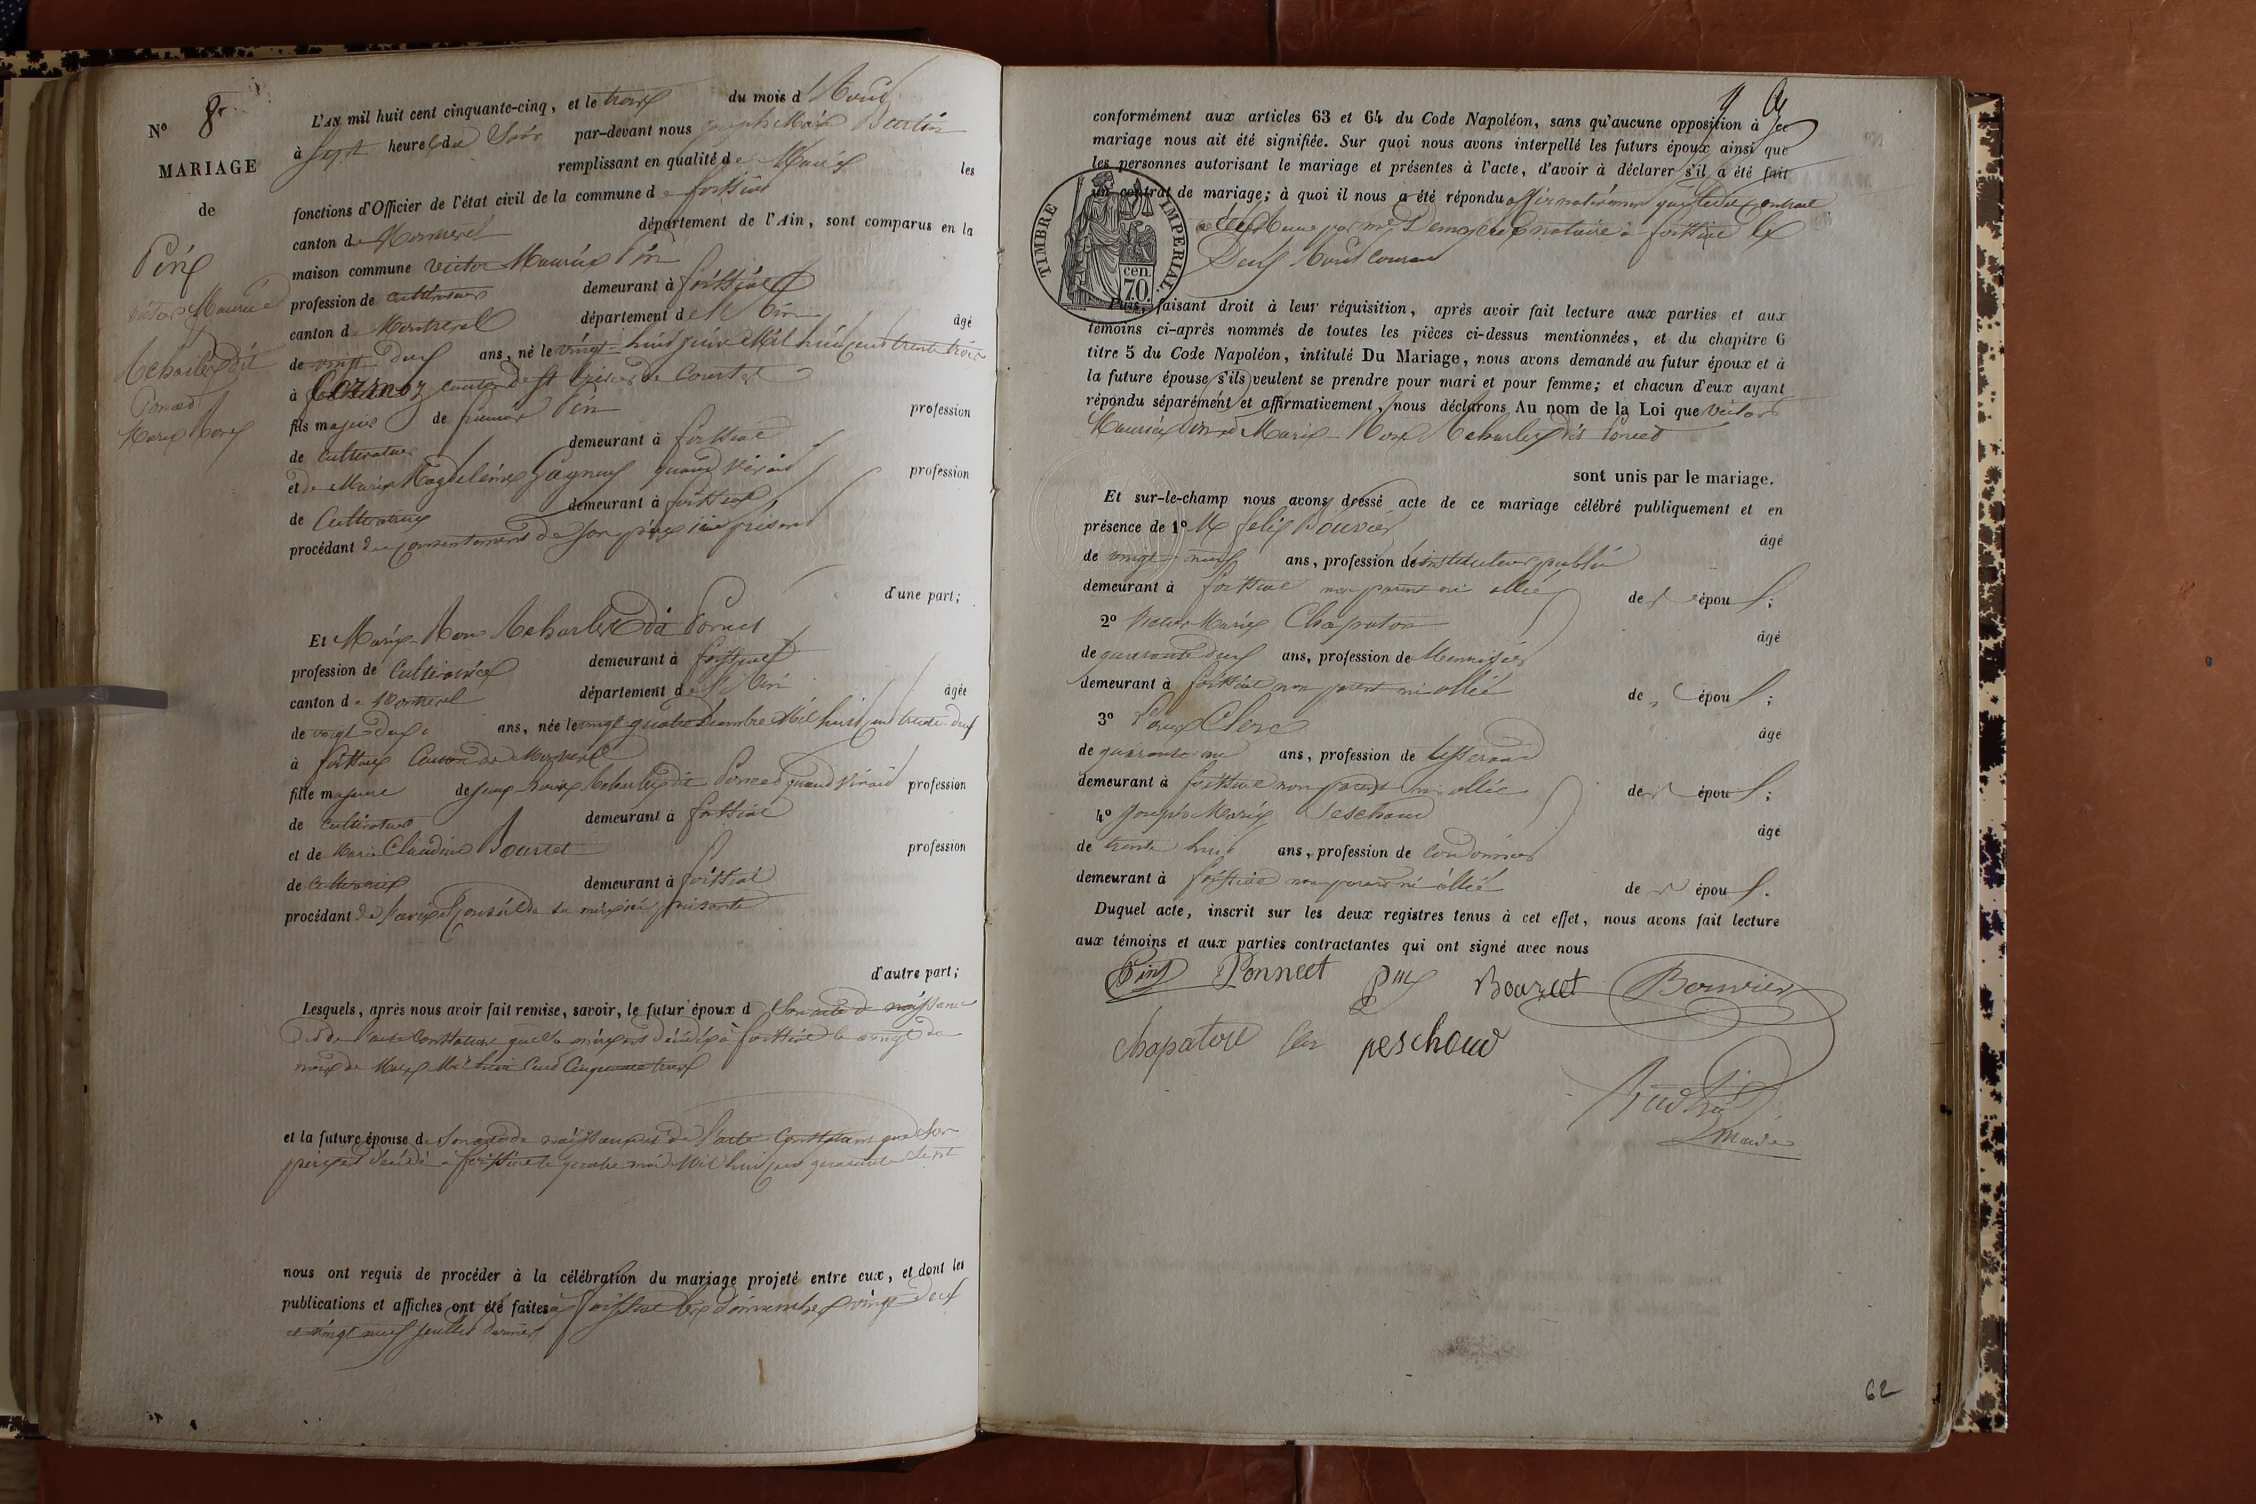 N° 8
MARIAGE
de
Pin
Victor Maurice
Récharlex dit
Poncet
Marie Rose
L'AN mil huit cent cinquante-cinq, et le trois du mois d'Août
à sept heures du Soir par-devant nous Joseph Marie
remplissant en qualité de Maire les
fonctions d'Officier de l'état civil de la commune de foissiat
canton de Montrevel département de l'Ain, sont comparus en la
maison commune Victor Maurice Pin
profession de cultivateur demeurant à foissiat
canton de Montrevel département de l'Ain âgé
de vingt deux ans, né le vingt-huit juin Mil huit cent trente trois
à Cormoz canton de St trivier de Courtes
fils majeur de Pin profession
de cultivateur demeurant à foissiat
et de Marie Magdeleine Gagneux quand vivait profession
de Cultivatrice demeurant à foissiat
procédant du consentement de son père ici présent
d'une part;
Et Marie Rose dit Poncet
profession de Cultivatrice demeurant à foissiat
canton de Montrevel département de l'Ain âgée
de vingt deux ans, née le vingt quatre Mil huit cent trente deux
à foissiat Canton de Montrevel
fille majeure de dit Poncet quand vivait profession
de cultivateur demeurant à foissiat
et de Marie Claudine Bourcet profession
de cultivatrice demeurant à foissiat
procédant de l'avis et conseil de sa mère ici présente
d'autre part;
Lesquels, après nous avoir fait remise, savoir, le futur époux de son acte de naissance
et de l'acte constatant que sa mère est décédée à foissiat le vingt du
mois de Mars Mil huit Cent Cinquante trois
et la future épouse de son acte de naissance et de l'acte constatant que son
père est décédé à foissiat le quatre mai Mil huit cent quarante sept
nous ont requis de procéder à la célébration du mariage projeté entre eux, et dont les
publications et affiches ont été faites à foissiat les dimanches vingt deux
et vingt neuf juillet dernier
conformément aux articles 63 et 64 du Code Napoléon, sans qu'aucune opposition à ce
mariage nous ait été signifiée. Sur quoi nous avons interpellé les futurs époux ainsi que
les personnes autorisant le mariage et présentes à l'acte, d'avoir à déclarer s'il a été fait
un contrat de mariage; à quoi il nous a été répondu affirmativement que ledit contrat
a été reçu par me notaire à foissiat le
Deux Août Courant
TIMBRE IMPERIAL.
cen.
70.
Puis, faisant droit à leur réquisition, après avoir fait lecture aux parties et aux
témoins ci-après nommés de toutes les pièces ci-dessus mentionnées, et du chapitre 6
titre 5 du Code Napoléon, intitulé Du Mariage, nous avons demandé au futur époux et à
la future épouse s'ils veulent se prendre pour mari et pour femme; et chacun d'eux ayant
répondu séparément et affirmativement, nous déclarons Au nom de la Loi que Victor
Maurice Pin et Marie Rose dit Poncet
sont unis par le mariage.
Et sur-le-champ nous avons dressé acte de ce mariage célébré publiquement et en
présence de 1° M felix Bouvier âgé
de vingt-neuf ans, profession d'instituteur public
demeurant à foissiat non parent ni allié des époux;
2° Marie Chapatou âgé
de quarante deux ans, profession de Menuisier
demeurant à foissiat non parent ni allié des époux;
3° Clerc âgé
de quarante un ans, profession de tisserand
demeurant à foissiat non parent ni allié des époux;
4° Joseph Marie Peschoud âgé
de trente huit ans, profession de Cordonnier
demeurant à foissiat non parent ni allié des époux.
Duquel acte, inscrit sur les deux registres tenus à cet effet, nous avons fait lecture
aux témoins et aux parties contractantes qui ont signé avec nous
Pin Ponncet Pin Bourcet Bouvier
chapatou Clerc peschoud
Maire
62